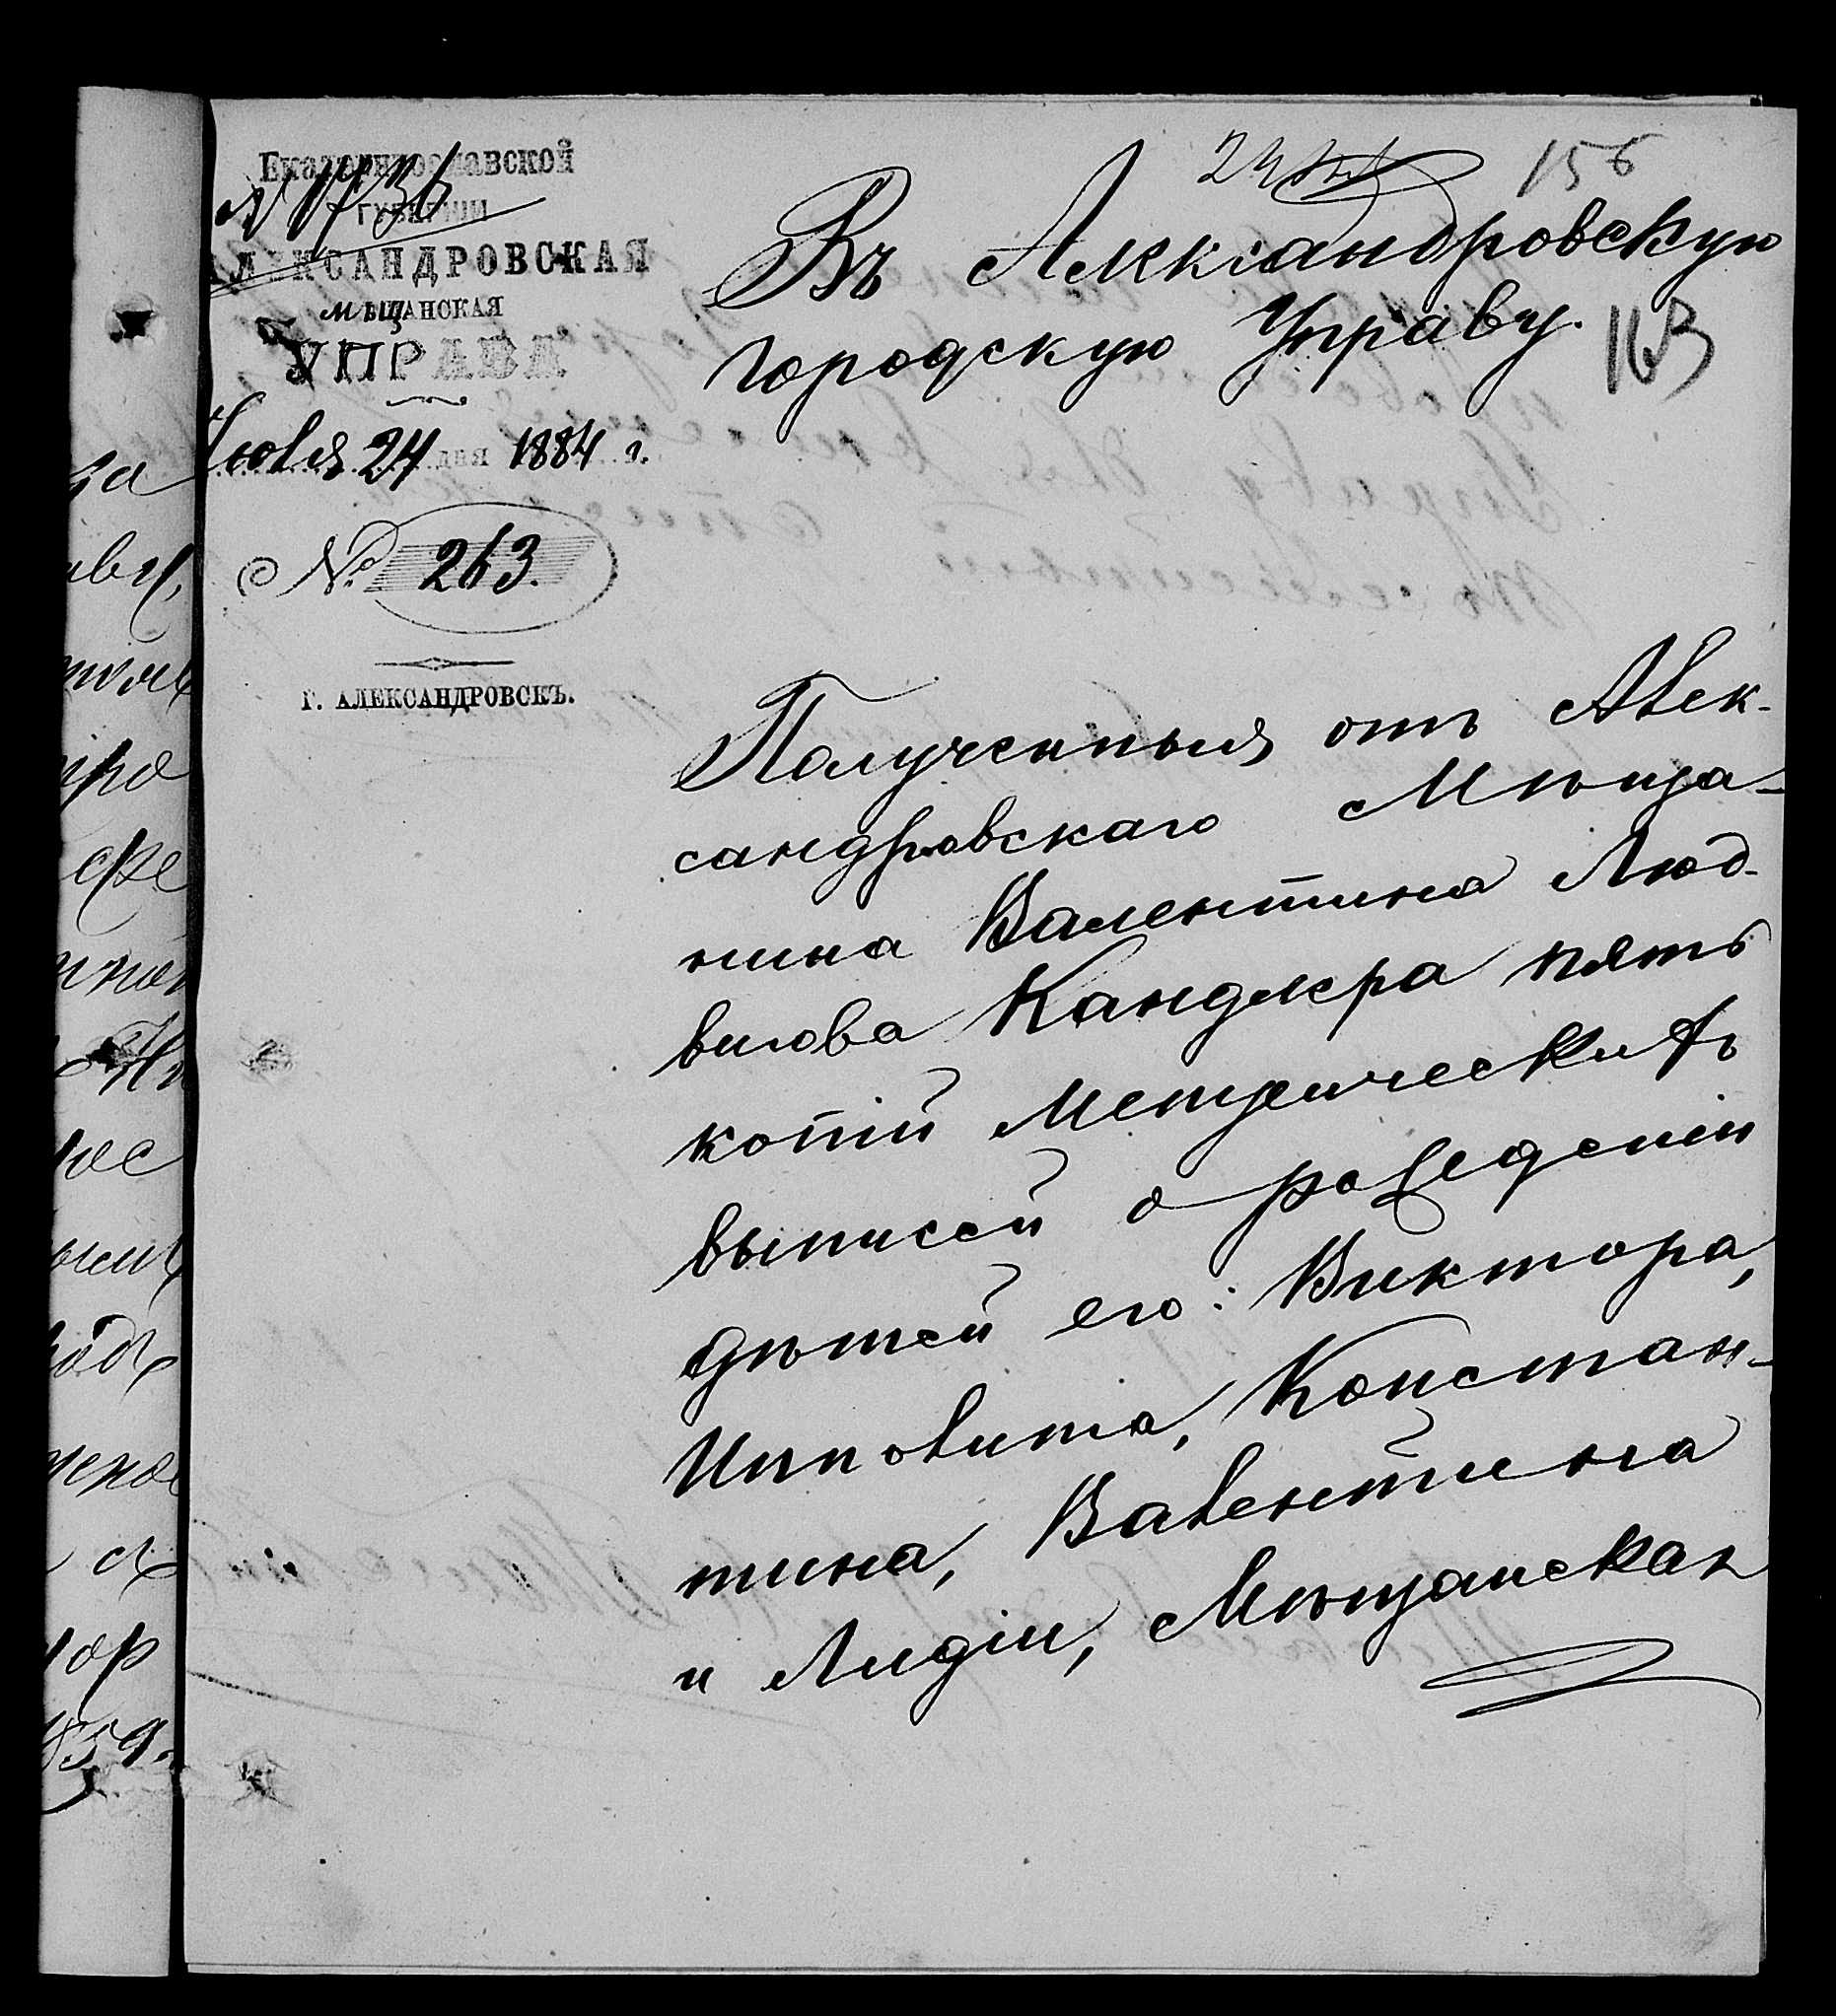 Екатеринославской
N 1736
ГУБЕРНІИ
АЛЕКСАНДРОВСКАЯ
МѢЩАНСКАЯ
УПРАВА
Іюля 24 дня 1884 г.
№ 263.
Г. АЛЕКСАНДРОВСКЪ.
156
Въ Александровскую
городскую Управу.
163
Полученныя отъ Алек-
сандровскаго Мѣща-
нина Валентина Люд-
вигова Кандлера пять
копій Метрическихъ
выписей о рожденіи
дѣтей его: Виктора,
Ипполита, Констан-
тина, Валентина
и Лидіи, Мѣщанская